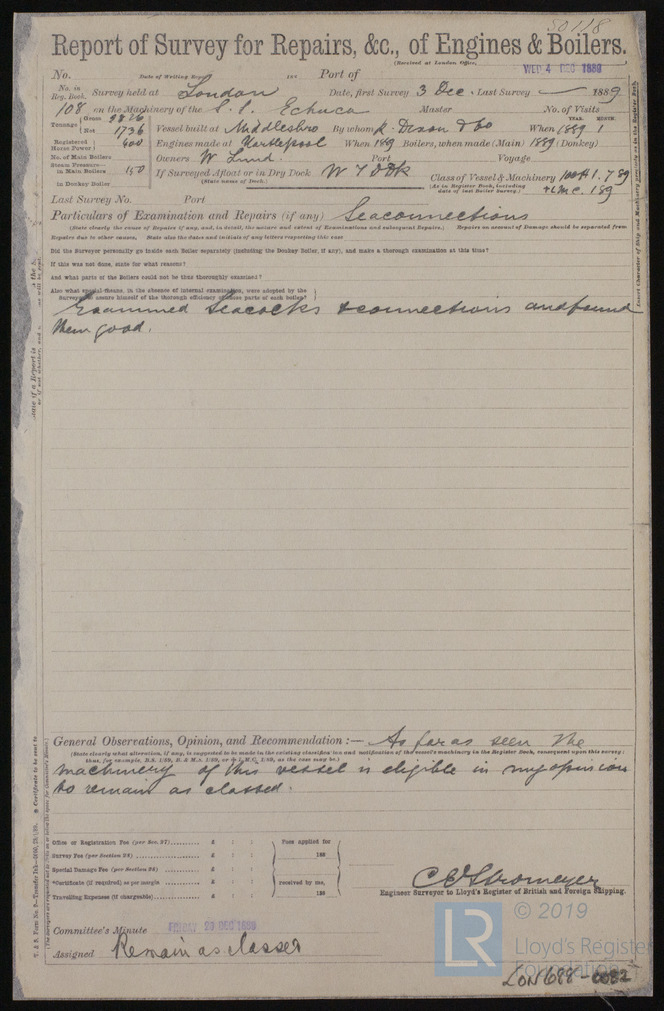 50118
Report of Survey for Repairs, &c., of Engines & Boilers.
(Received at London Office, WED 4 DEC 1889
No. Date of Writing Report 188 Port of
No. in Reg. Book. Survey held at London Date, first Survey 3 Dec Last Survey 1889
108 on the Machinery of the S.S. Echuca Master No. of Visits
Tonnage Gross 2826 Net 1736 Vessel built at Middlesbro By whom R. Dixon & Co When 1889 YEAR. MONTH. 1
Registered Horse Power 400 Engines made at Hartlepool When 189 Boilers, when made (Main) 1889 (Donkey)
No. of Main Boilers Owners W. Lund. Port Voyage
Steam Pressure— in Main Boilers 150 If Surveyed Afloat or in Dry Dock (State name of Dock.) Class of Vessel & Machinery 100A1. 7 89
in Donkey Boiler (As in Register Book, including date of last Boiler Survey.) +LMC. 1 89
Last Survey No. Port
Particulars of Examination and Repairs (if any) Seaconnections
(State clearly the cause of Repairs if any, and, in detail, the nature and extent of Examinations and subsequent Repairs.) Repairs on account of Damage should be separated from
Repairs due to other causes. State also the dates and initials of any letters respecting this case
Did the Surveyor personally go inside each Boiler separately (including the Donkey Boiler, if any), and make a thorough examination at this time?
If this was not done, state for what reasons?
And what parts of the Boilers could not be thus thoroughly examined?
Also what special means, in the absence of internal examination, were adopted by the
Surveyor to assure himself of the thorough efficiency of those parts of each boiler?
Examined Seacocks & connections and found
them good.
General Observations, Opinion, and Recommendation :— As far as seen the
(State clearly what alteration, if any, is suggested to be made in the existing classification and notification of the vessel's machinery in the Register Book, consequent upon this survey;
thus, for example, B.S. 1/89, B. & M.S. 1/89, or + L.M.C. 1/89, as the case may be.)
machinery of this vessel is eligible in my opinion
to remain as classed.
Office or Registration Fee (per Sec. 27) £ : : Fees applied for
Survey Fee (per Section 28) £ : : 188
Special Damage Fee (per Section 28) £ : :
*Certificate (if required) as per margin £ : : received by me,
Travelling Expenses (if chargeable) £ : : 188
C E Stromeyer
Engineer Surveyor to Lloyd's Register of British and Foreign Shipping.
Committee's Minute FRIDAY 20 DEC 1889
Assigned Remain as classed
LR © 2019
Lloyd's Register
Foundation
LON 688-0082